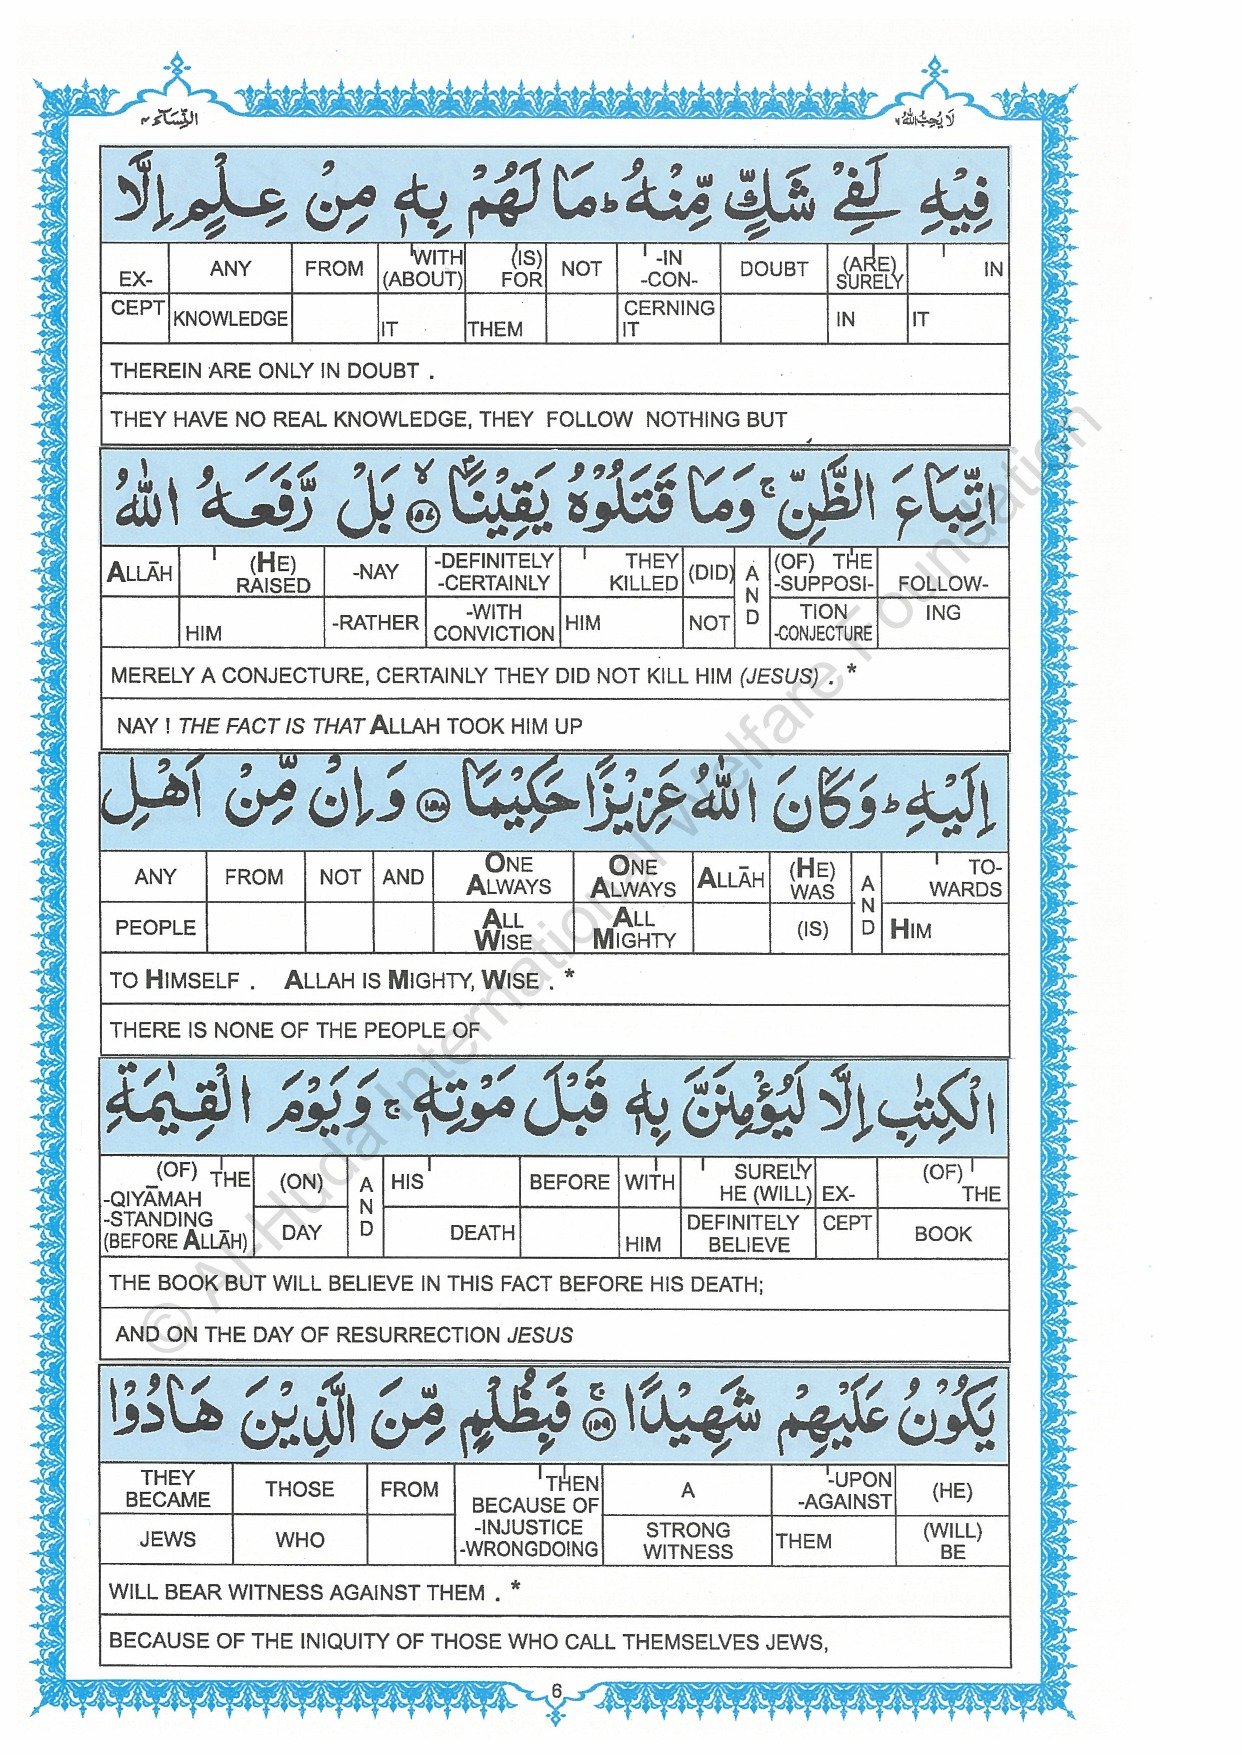 النِّسَآء ٤
لَا يُحِبُّ اللهُ ٦
فِيْهِ لَفِيْ شَكٍّ مِّنْهُ ؕ مَا لَهُمْ بِهٖ مِنْ عِلْمٍ اِلَّا
EX- ANY FROM WITH (IS) NOT -IN DOUBT (ARE) IN
(ABOUT) FOR -CON- SURELY
CEPT KNOWLEDGE IT THEM CERNING IT IN IT
THEREIN ARE ONLY IN DOUBT .
THEY HAVE NO REAL KNOWLEDGE, THEY FOLLOW NOTHING BUT
اتِّبَاعَ الظَّنِّ ۚ وَمَا قَتَلُوْهُ يَقِيْنًا ۙ ١٥٧ بَلْ رَّفَعَهُ اللهُ
ALLĀH (HE) RAISED -NAY -DEFINITELY -CERTAINLY THEY KILLED (DID) AND (OF) THE -SUPPOSI- FOLLOW-
HIM -RATHER -WITH CONVICTION HIM NOT TION -CONJECTURE ING
MERELY A CONJECTURE, CERTAINLY THEY DID NOT KILL HIM (JESUS) . *
NAY ! THE FACT IS THAT ALLAH TOOK HIM UP
اِلَيْهِ ؕ وَكَانَ اللهُ عَزِيْزًا حَكِيْمًا ١٥٨ وَاِنْ مِّنْ اَهْلِ
ANY FROM NOT AND ONE ALWAYS ONE ALWAYS ALLĀH (HE) WAS AND TO- WARDS
PEOPLE ALL WISE ALL MIGHTY (IS) HIM
TO HIMSELF . ALLAH IS MIGHTY, WISE . *
THERE IS NONE OF THE PEOPLE OF
الْكِتٰبِ اِلَّا لَيُؤْمِنَنَّ بِهٖ قَبْلَ مَوْتِهٖ ۚ وَيَوْمَ الْقِيٰمَةِ
(OF) THE -QIYĀMAH (ON) AND HIS BEFORE WITH SURELY HE (WILL) EX- (OF) THE
-STANDING (BEFORE ALLĀH) DAY DEATH HIM DEFINITELY BELIEVE CEPT BOOK
THE BOOK BUT WILL BELIEVE IN THIS FACT BEFORE HIS DEATH;
AND ON THE DAY OF RESURRECTION JESUS
يَكُوْنُ عَلَيْهِمْ شَهِيْدًا ۚ ١٥٩ فَبِظُلْمٍ مِّنَ الَّذِيْنَ هَادُوْا
THEY BECAME THOSE FROM THEN BECAUSE OF A -UPON -AGAINST (HE)
JEWS WHO -INJUSTICE -WRONGDOING STRONG WITNESS THEM (WILL) BE
WILL BEAR WITNESS AGAINST THEM . *
BECAUSE OF THE INIQUITY OF THOSE WHO CALL THEMSELVES JEWS,
6
© Al-Huda International Welfare Foundation